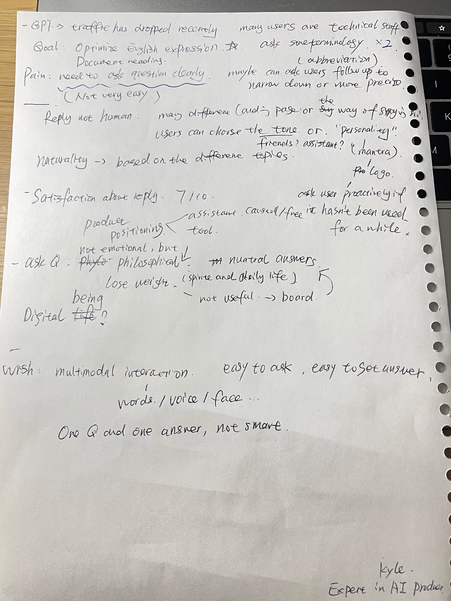 - GPT → traffic has dropped recently many users are technical staff
Goal: Optimize English expression. ☆ ask some terminology ×2
Document reading. (abbreviation)
Pain: need to ask question clearly. maybe can ask users follow up to
(Not very easy) narrow down or more precise
Reply not human. many different (audio, pase or the way of
users can choose the tone or "personality"
friends? assistant? (mantra)
Naturality → based on the different topics. Logo.
- Satisfaction about reply. 7/10 ask user proactively if
product assistant. casual/free it hasn't been used
positioning tool. for a while.
not emotional, but
- ask Q. philosophical! nuatral answers
lose weight. (spirit and daily life)
being not useful → board.
Digital life?
—
Wish: multimodal interaction. easy to ask, easy to get answer.
words / voice / face ...
One Q and one answer, not smart.
Kyle.
Expert in AI produc